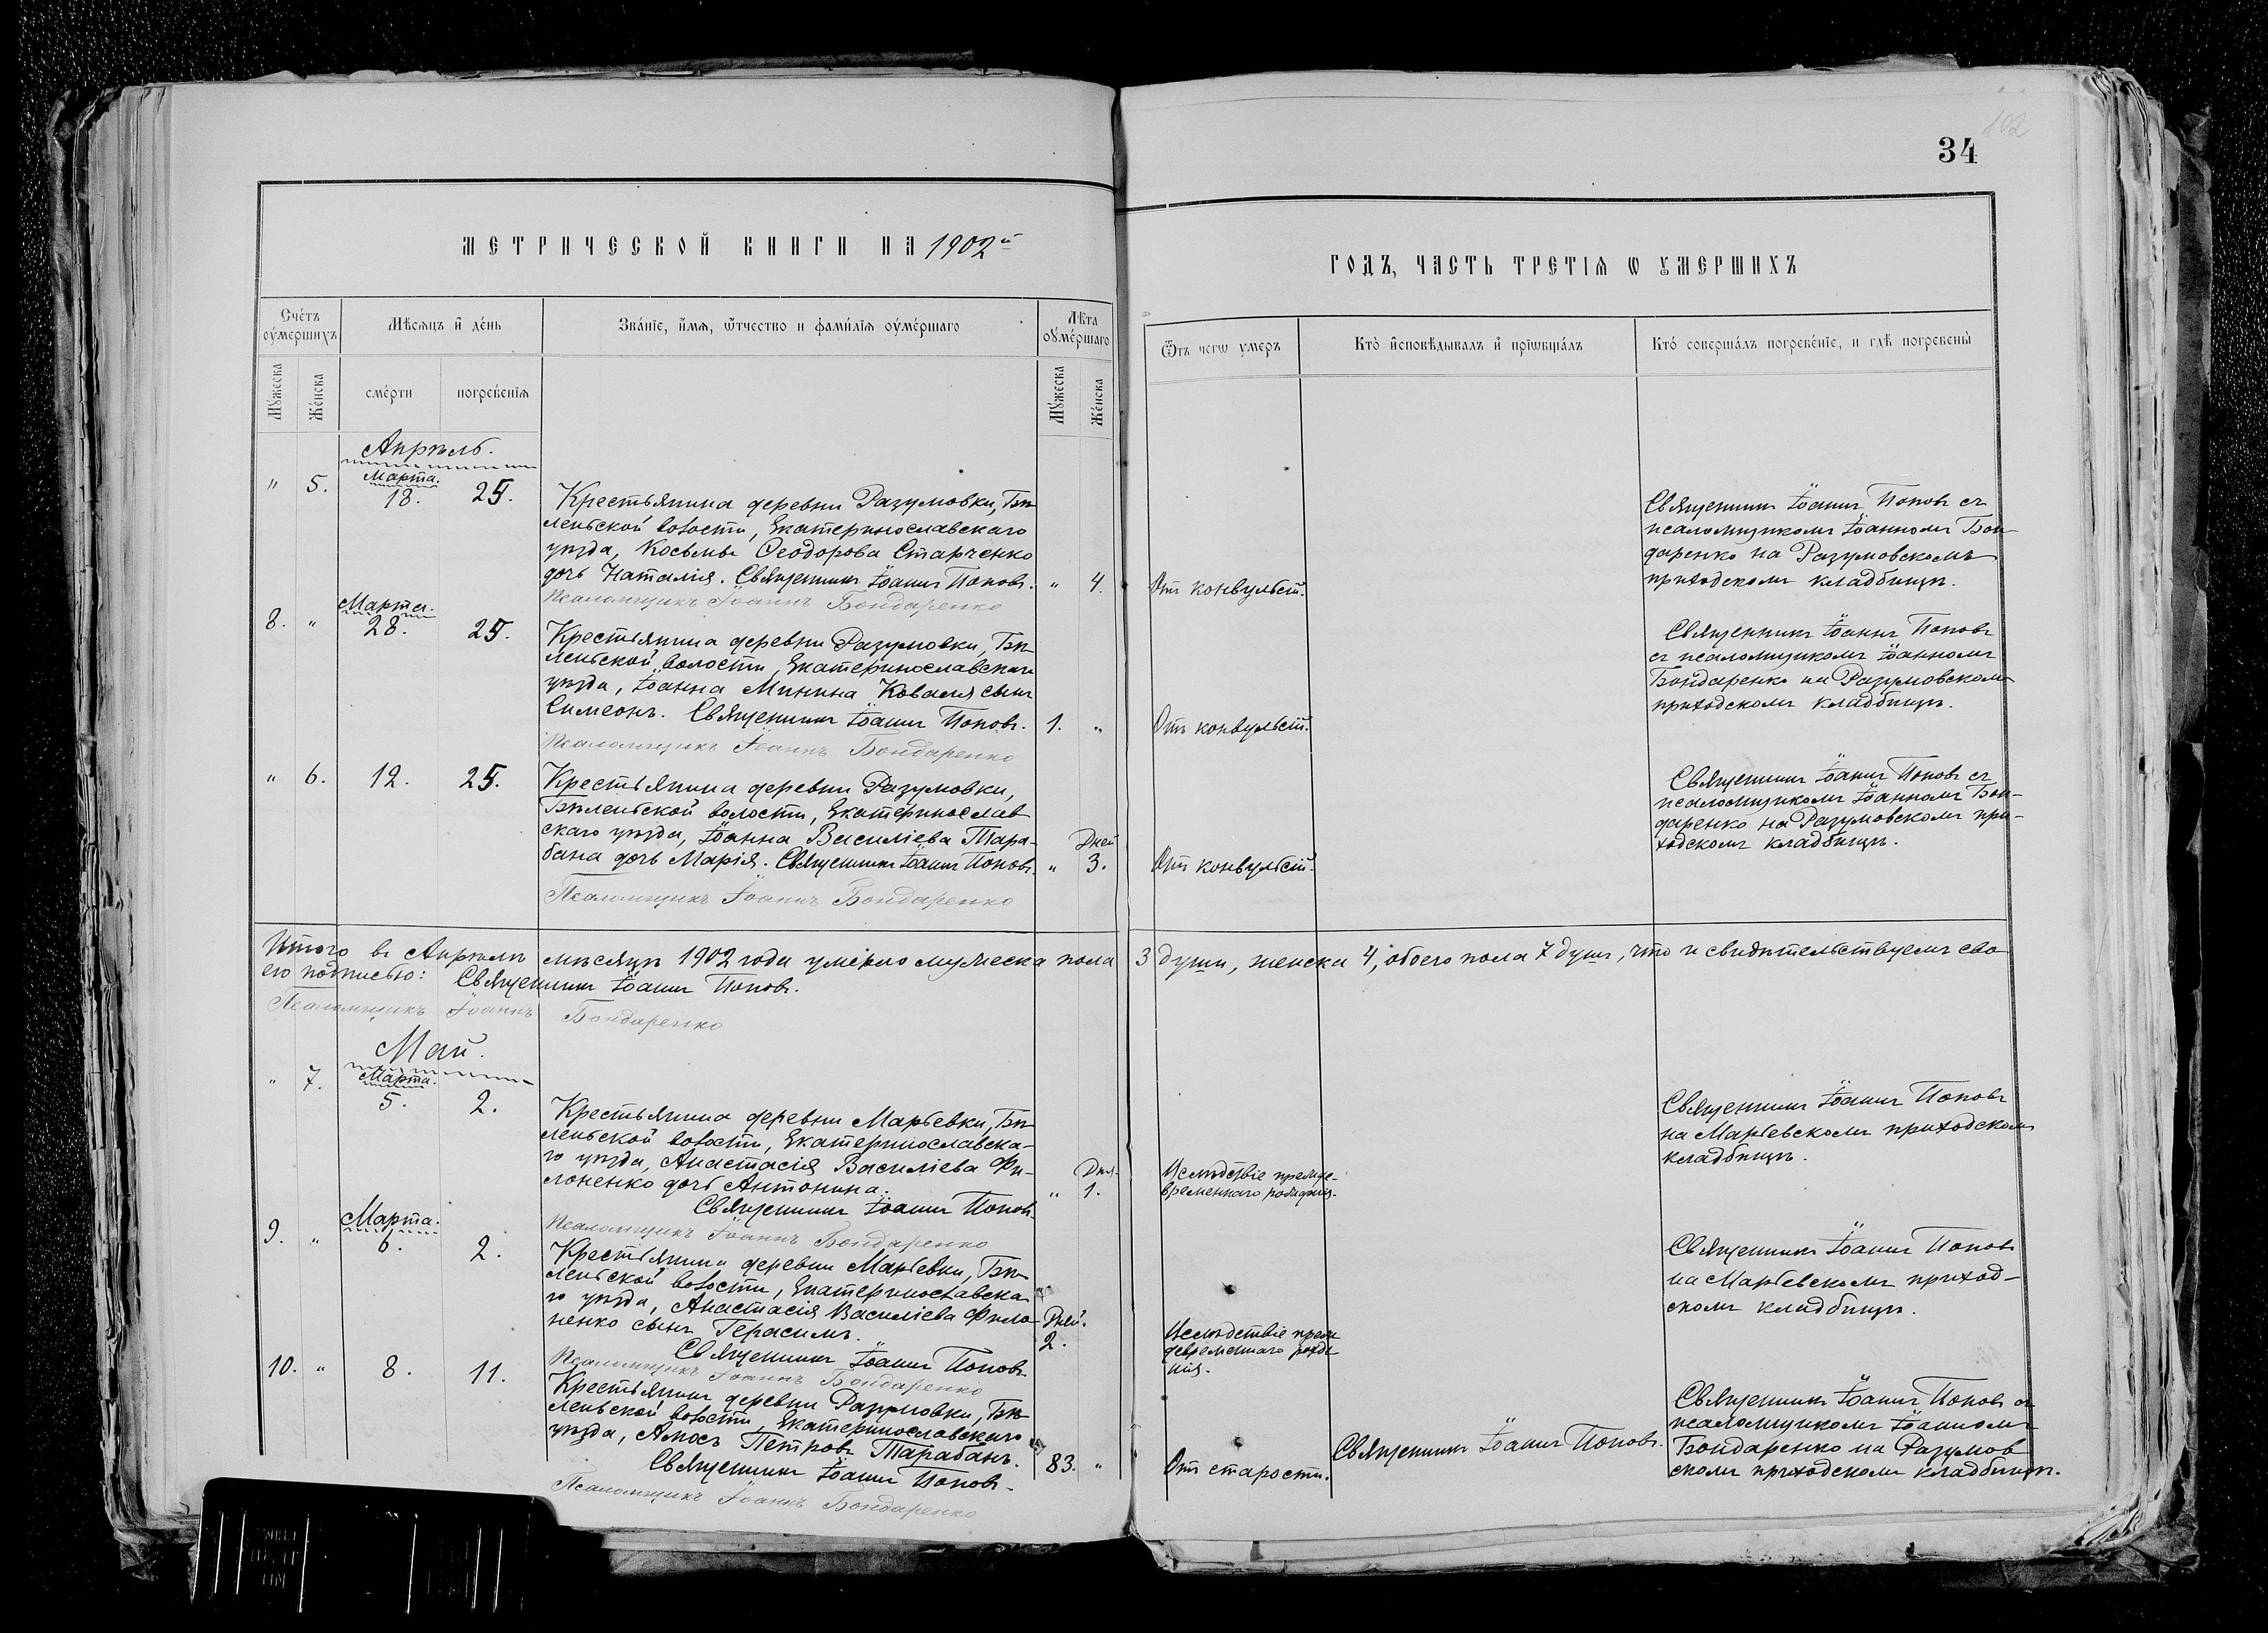 102
34
МЕТРИЧЕСКОЙ КНИГИ НА 1902й
ГОДЪ, ЧАСТЬ ТРЕТІѦ Ѡ ОУМЕРШИХЪ
Счётъ оумершихъ
Мѣсяцъ и день
Званіе, имя, ѿчество и фамилія оумершаго
Лѣта оумершаго
Мужеска
Женска
смерти
погребенія
Мужеска
Женска
Ѿъ чегѡ умеръ
Кто исповѣдывалъ и пріѡбщалъ
Кто совершалъ погребеніе, и гдѣ погребены
Апрѣль.
" 5.
Марта.
18. 25.
Крестьянина деревни Разумовки, Бѣ-
ленской волости, Екатеринославскаго
уѣзда, Косьмы Ѳеодорова Старченко
дочь Наталія. Священникъ Іоаннъ Поповъ.
Псаломщикъ Іоаннъ Бондаренко
" 4.
Отъ конвульсій.
Священникъ Іоаннъ Поповъ съ
псаломщикомъ Іоанномъ Бон-
даренко на Разумовскомъ
приходскомъ кладбищѣ.
8. "
Марта.
28. 25.
Крестьянина деревни Разумовки, Бѣ-
ленской волости, Екатеринославскаго
уѣзда, Іоанна Минина Коваля сынъ
Симеонъ. Священникъ Іоаннъ Поповъ.
Псаломщикъ Іоаннъ Бондаренко
1. "
Отъ конвульсій.
Священникъ Іоаннъ Поповъ
съ псаломщикомъ Іоанномъ
Бондаренко на Разумовскомъ
приходскомъ кладбищѣ.
" 6. 12. 25.
Крестьянина деревни Разумовки,
Бѣленской волости, Екатеринослав
скаго уѣзда, Іоанна Василіева Тара-
бана дочь Марія. Священникъ Іоаннъ Поповъ.
Псаломщикъ Іоаннъ Бондаренко
Дней
" 3.
Отъ конвульсій.
Священникъ Іоаннъ Поповъ съ
псаломщикомъ Іоанномъ Бон-
даренко на Разумовскомъ при-
ходскомъ кладбищѣ.
Итого въ Апрѣлѣ мѣсяцѣ 1902 года умерло мужеска пола 3 души, женска 4, обоего пола 7 душъ, что и свидѣтельствуемъ сво
ею подписью: Священникъ Іоаннъ Поповъ.
Псаломщикъ Іоаннъ Бондаренко
Май.
" 7.
Марта.
5. 2.
Крестьянина деревни Марьевки, Бѣ-
ленской волости, Екатеринославска-
го уѣзда, Анастасія Василіева Фи-
лоненко дочь Антонина.
Священникъ Іоаннъ Поповъ.
Псаломщикъ Іоаннъ Бондаренко
Дня.
" 1.
Священникъ Іоаннъ Поповъ
на Марьевскомъ приходскомъ
кладбищѣ.
9. "
Марта.
6. 2.
Крестьянина деревни Марьевки, Бѣ-
ленской волости, Екатеринославска
го уѣзда, Анастасія Василіева Фило-
ненко сынъ Герасимъ.
Священникъ Іоаннъ Поповъ
Псаломщикъ Іоаннъ Бондаренко
Дней.
2.
Священникъ Іоаннъ Поповъ
на Марьевскомъ приход-
скомъ кладбищѣ.
10. " 8. 11.
Крестьянинъ деревни Разумовки, Бѣ-
ленской волости, Екатеринославскаго
уѣзда, Амосъ Петровъ Тарабанъ.
Священникъ Іоаннъ Поповъ.
Псаломщикъ Іоаннъ Бондаренко
83. "
Отъ старости.
Священникъ Іоаннъ Поповъ.
Священникъ Іоаннъ Поповъ съ
псаломщикомъ Іоанномъ
Бондаренко на Разумов
скомъ приходскомъ кладбищѣ.